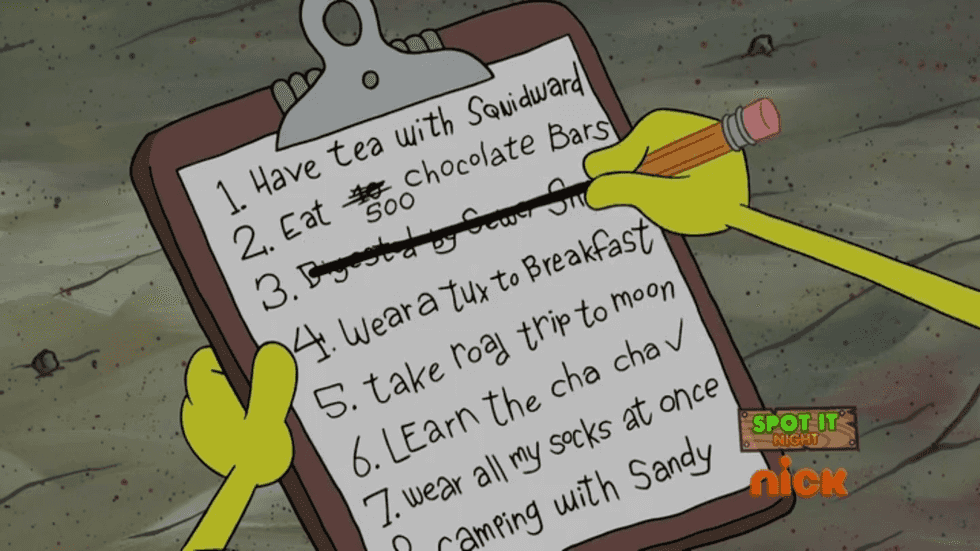 1. Have tea with Squidward
2. Eat 500 chocolate Bars
3. Digested by Sewer
4. Wear a tux to Breakfast
5. take road trip to moon
6. LEarn The cha cha √
7. wear all my socks at once
8. camping with Sandy
SPOT IT
NIGHT
nick